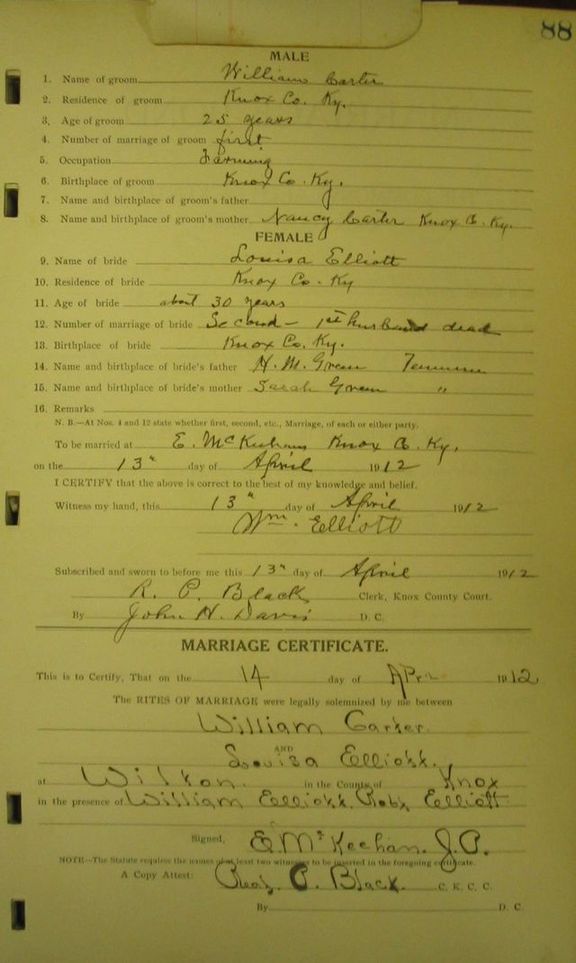 88
MALE
1. Name of groom William Carter
2. Residence of groom Knox Co. Ky.
3. Age of groom 25 years
4. Number of marriage of groom first
5. Occupation Farming
6. Birthplace of groom Knox Co. Ky.
7. Name and birthplace of groom's father
8. Name and birthplace of groom's mother Nancy Carter Knox Co. Ky.
FEMALE
9. Name of bride Louisa Elliott
10. Residence of bride Knox Co. Ky
11. Age of bride about 30 years
12. Number of marriage of bride Second - 1st husband dead
13. Birthplace of bride Knox Co. Ky.
14. Name and birthplace of bride's father H. M. Green
15. Name and birthplace of bride's mother Sarah Green "
16. Remarks
N. B.—At Nos. 4 and 12 state whether first, second, etc., Marriage, of each or either party.
To be married at E. McKeehans Knox Co. Ky.
on the 13" day of April 1912
I CERTIFY that the above is correct to the best of my knowledge and belief.
Witness my hand, this 13" day of April 1912
Wm. Elliott
Subscribed and sworn to before me this 13" day of April 1912
R. P. Black Clerk, Knox County Court.
By John H. Davis D. C.
MARRIAGE CERTIFICATE.
This is to Certify, That on the 14 day of Apr 1912
The RITES OF MARRIAGE were legally solemnized by me between
William Carter.
AND
Louisa Elliott.
at Wilton. in the County of Knox
in the presence of William Elliott. Elliott
Signed, E McKeehan. J. P.
NOTE—The Statute requires the names of at least two witnesses to be inserted in the foregoing certificate.
A Copy Attest: P. Black. C. K. C. C.
By D. C.